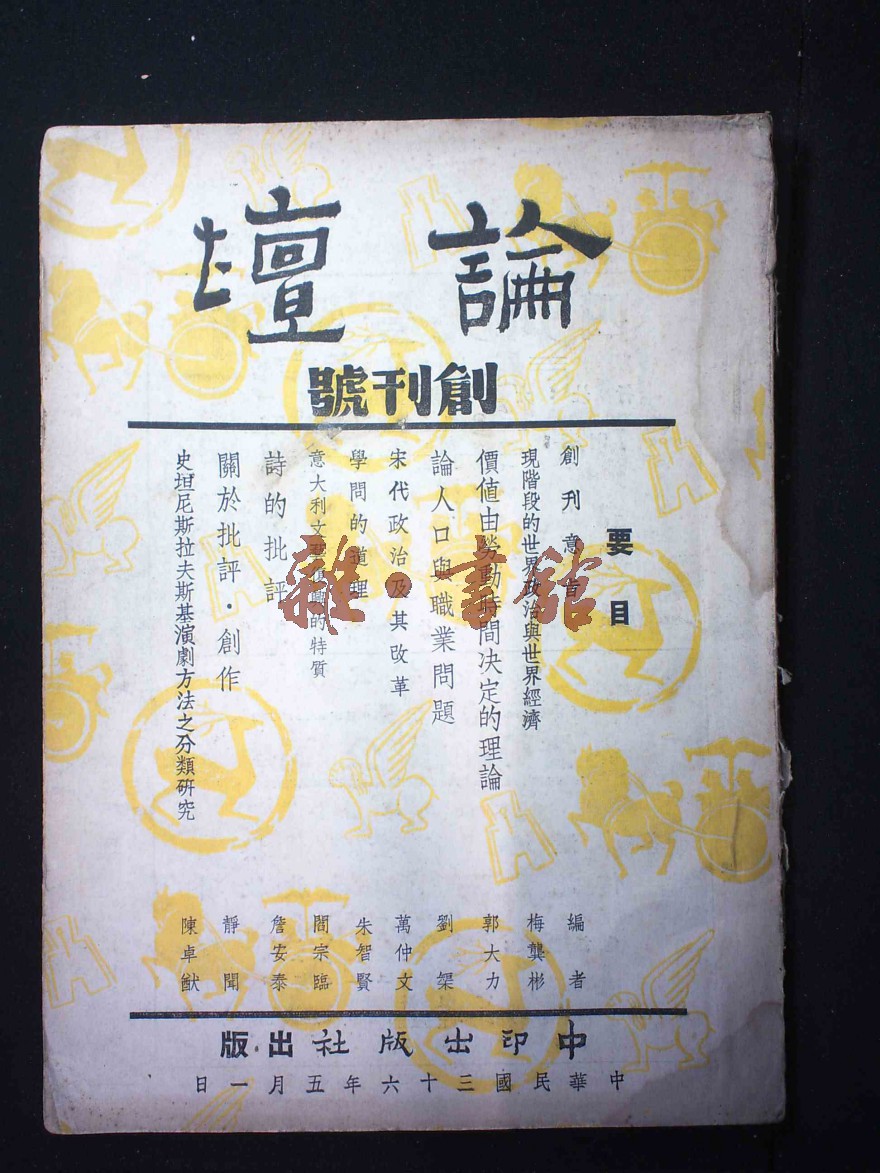 論壇
創刊號
要目
創刊意旨
現階段的世界政治與世界經濟
價值由勞動時間決定的理論
論人口與職業問題
宋代政治及其改革
學問的道理
意大利文藝復興的特質
詩的批評
關於批評·創作
史坦尼斯拉夫斯基演劇方法之分類研究
編者
梅龔彬
郭大力
劉榘
萬仲文
朱智賢
閻宗臨
詹安泰
靜聞
陳卓猷
中印出版社出版
中華民國三十六年五月一日
雜·書館